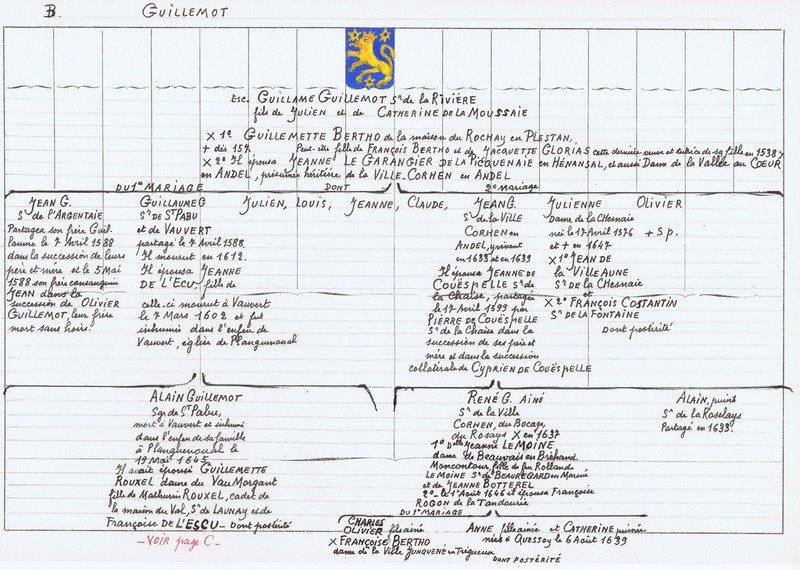 B. GUILLEMOT
Esc. GUILLAME GUILLEMOT Sr de la RIVIÈRE
fils de JULIEN et de CATHERINE DE LA MOUSSAIE
X 1º GUILLEMETTE BERTHO de la maison du ROCHAY en PLESTAN,
+ dès 157. Peut-être fille de FRANÇOIS BERTHO et de JACQUETTE GLORIAS cette dernière veuve et tutrice de sa fille en 1538
X 2º Il épousa JEANNE LE GARANGIER DE LA PICQUENAIE en HÉNANSAL, et aussi Dame de la Vallée au COEUR
en ANDEL, présumée héritière de la VILLE-CORHEN en ANDEL
DU 1er MARIAGE DONT 2e mariage
JEAN G.
Sr de l'ARGENTAIE
Partagea son frère Guil-
laume le 7 Avril 1588
dans la succession de leurs
père et mère et le 5 Mai
1588 son frère consanguin
JEAN dans la
succession de OLIVIER
GUILLEMOT, leur frère
mort sans hoirs.
GUILLAUME G
Sr DE St PABU
et de VAUVERT
partagé le 7 Avril 1588.
Il mourut en 1612.
Il épousa JEANNE
DE L'ECU fille de
celle-ci mourut à Vauvert
le 7 Mars 1602 et fut
inhumée dans l'enfeu de
Vauvert, église de Planguenoual
JULIEN, LOUIS, JEANNE, CLAUDE,
JEAN G.
Sr de la VILLE
CORHEN en
ANDEL, y vivant
en 1633 et en 1639
Il épousa JEANNE DE
COUËSPELLE Sr de
la Chaise, partagée
le 17 Avril 1599 par
PIERRE DE COUËSPELLE
Sr de la Chaise dans la
succession de ses père et
mère et dans la succession
collatérale de CYPRIEN DE COUËSPELLE
JULIENNE
Dame de la Chesnaie
née le 17 Avril 1576
et + en 1647
X 1º JEAN DE
la VILLEAUNE
Sr de la CHESNAIE
et
X 2º FRANÇOIS COSTANTIN
Sr DE LA FONTAINE
Dont postérité
OLIVIER
+ S p.
ALAIN GUILLEMOT
Sgr de St Pabu,
mort à Vauvert et inhumé
dans l'enfeu de sa famille
à Planguenoual le
19 Mai 1645
Il avait épousé GUILLEMETTE
ROUXEL dame du Vau Morgant
fille de Mathurin ROUXEL, cadet de
la maison du Val, Sr de LAUNAY et de
Françoise DE L'ESCU - Dont postérité
- VOIR page C -
RENÉ G. AINÉ
Sr de la Ville
CORHEN, du Bocage,
du Rosays X en 1637
1º Delle JEANNE LEMOINE
dame de Beauvais en Bréhand
Moncontour, fille de feu Rolland
LE MOINE Sr de BEAUREGARD en Maroué
et de JEANNE BOTTEREL
2º le 1er Août 1646 et épousa Françoise
ROGON de la Tandourie
DU 1er MARIAGE
ALAIN, puiné
Sr de la Roselays
Partagé en 1633
CHARLES
OLIVIER fils ainé
X FRANÇOISE BERTHO
dame de la Ville JUNGUENÉ en Trégueux
ANNE fille ainée et CATHERINE puinée
née à Quessoy le 6 Août 1639
DONT POSTÉRITÉ